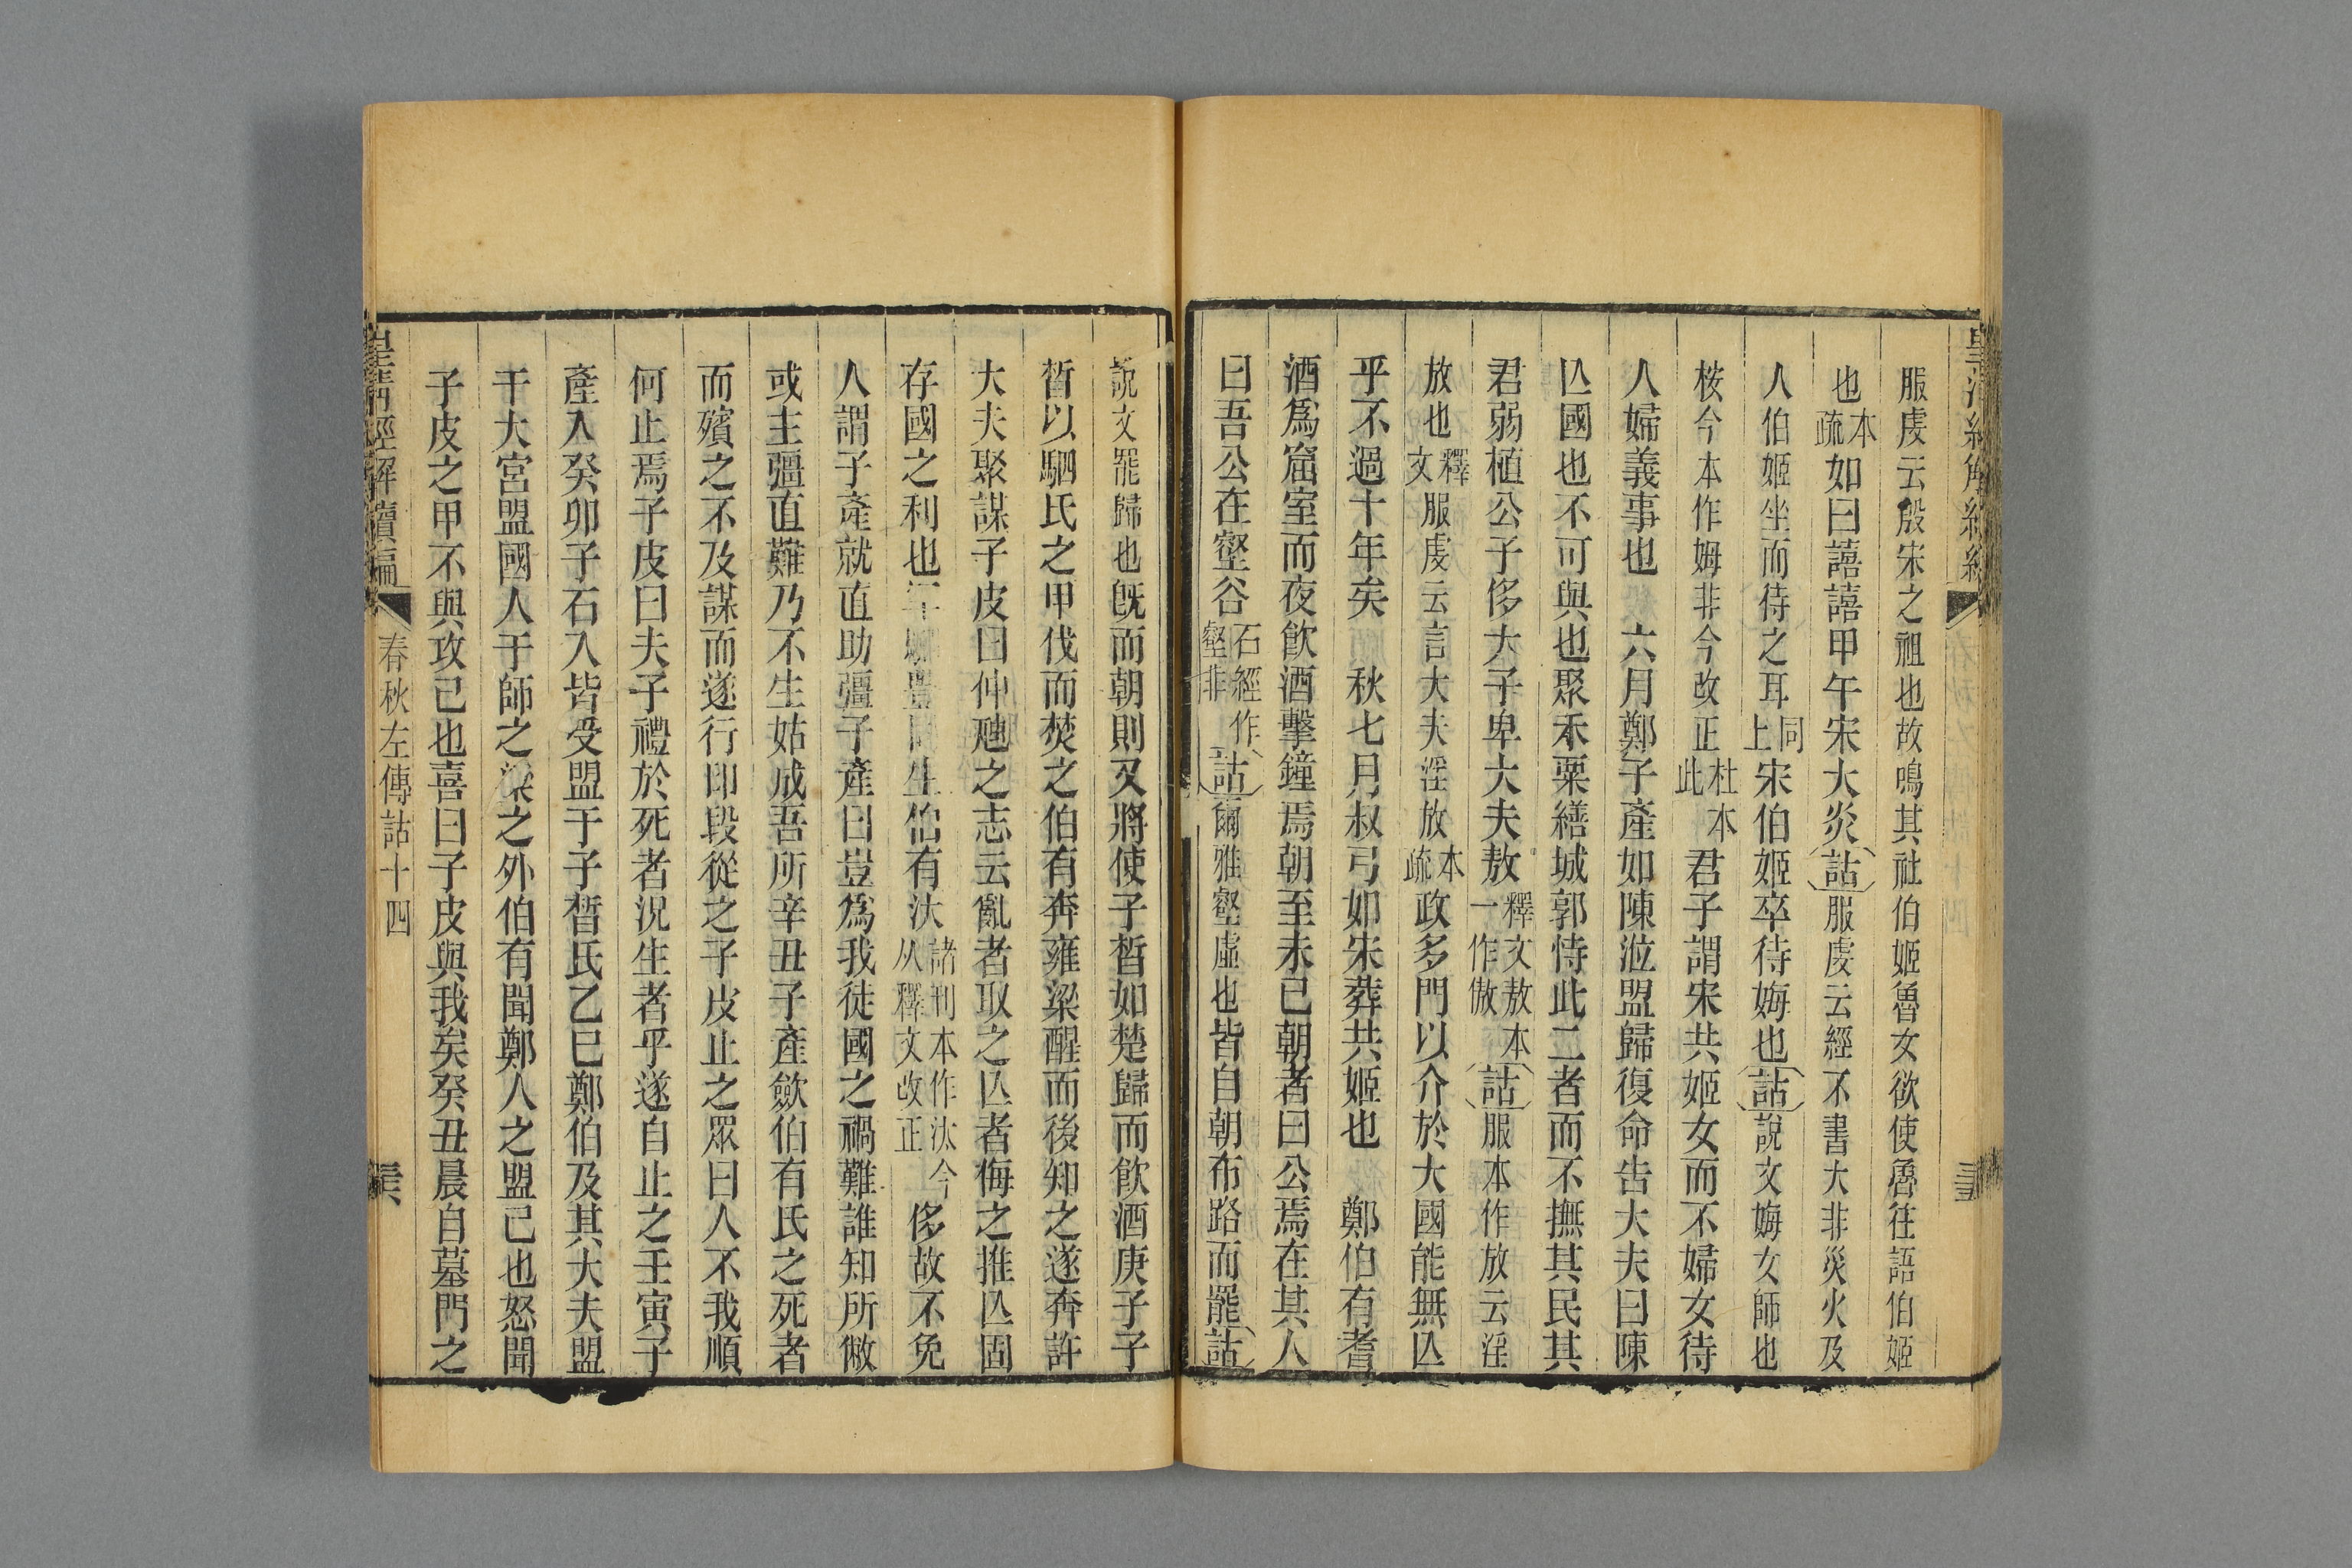 服虔云殷宋之祖也故鳴其社伯姬魯女欲使魯往語伯姬
也本疏如曰譆譆甲午宋大災詁服虔云經不書大非災火及
人伯姬坐而待之耳同上宋伯姬卒待姆也詁說文娒女師也
桉今本作姆非今改正杜本此君子謂宋共姬女而不婦女待
人婦義事也 六月鄭子產如陳涖盟歸復命告大夫曰陳
亾國也不可與也聚禾粟繕城郭恃此二者而不撫其民其
君弱植公子侈大子卑大夫敖釋文敖本一作傲詁服本作放云淫
放也釋文服虔云言大夫淫放本疏政多門以介於大國能無亾
乎不過十年矣 秋七月叔弓如宋葬共姬也 鄭伯有耆
酒爲窟室而夜飮酒擊鐘焉朝至未已朝者曰公焉在其人
曰吾公在壑谷石經作壑非詁爾雅壑虛也皆自朝布路而罷詁
說文罷歸也旣而朝則又將使子晳如楚歸而飮酒庚子子
晳以駟氏之甲伐而焚之伯有奔雍梁醒而後知之遂奔許
大夫聚謀子皮曰仲虺之志云亂者取之亾者侮之推亾固
存國之利也罕駟豐同生伯有汏諸刊本作汰今从釋文改正侈故不免
人謂子產就直助彊子產曰豈爲我徒國之禍難誰知所儆
或主彊直難乃不生姑成吾所辛丑子產斂伯有氏之死者
而殯之不及謀而遂行印段從之子皮止之眾曰人不我順
何止焉子皮曰夫子禮於死者況生者乎遂自止之壬寅子
產入癸卯子石入皆受盟于子晳氏乙巳鄭伯及其大夫盟
于大宮盟國人于師之梁之外伯有聞鄭人之盟己也怒聞
子皮之甲不與攻己也喜曰子皮與我矣癸丑晨自墓門之
皇淸經解續編 春秋左傳詁十四